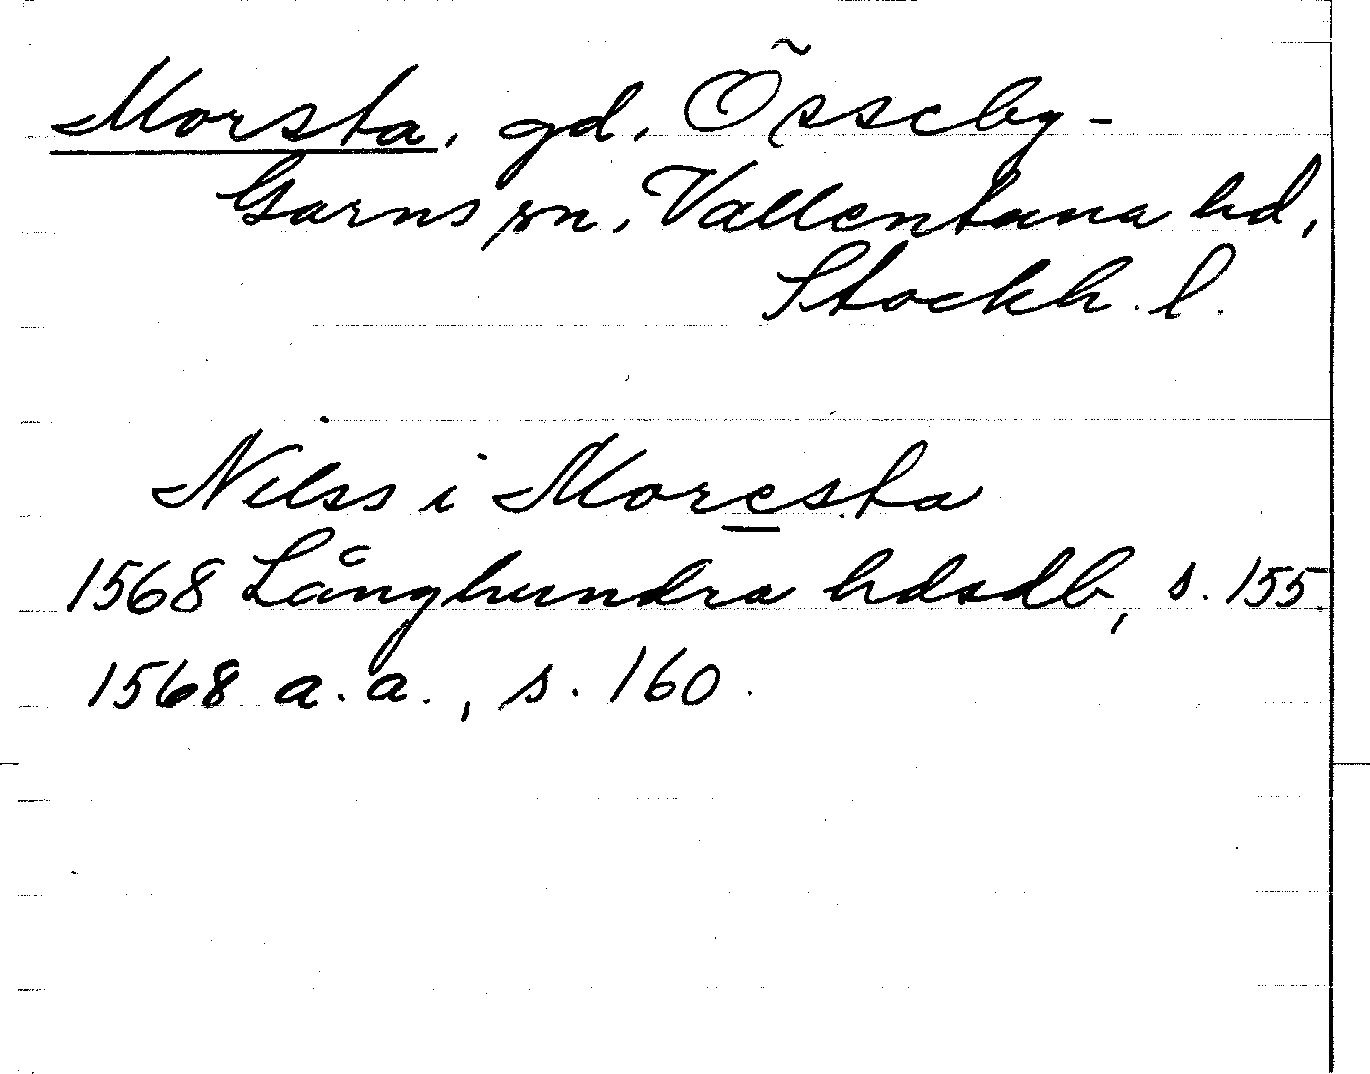 Morsta, gd, Össeby-
Garns sn, Vallentuna hd,
Stockh. l.
Nilss i Moresta
1568 Långhundra hdsdb, s. 155.
1568 a.a., s. 160.